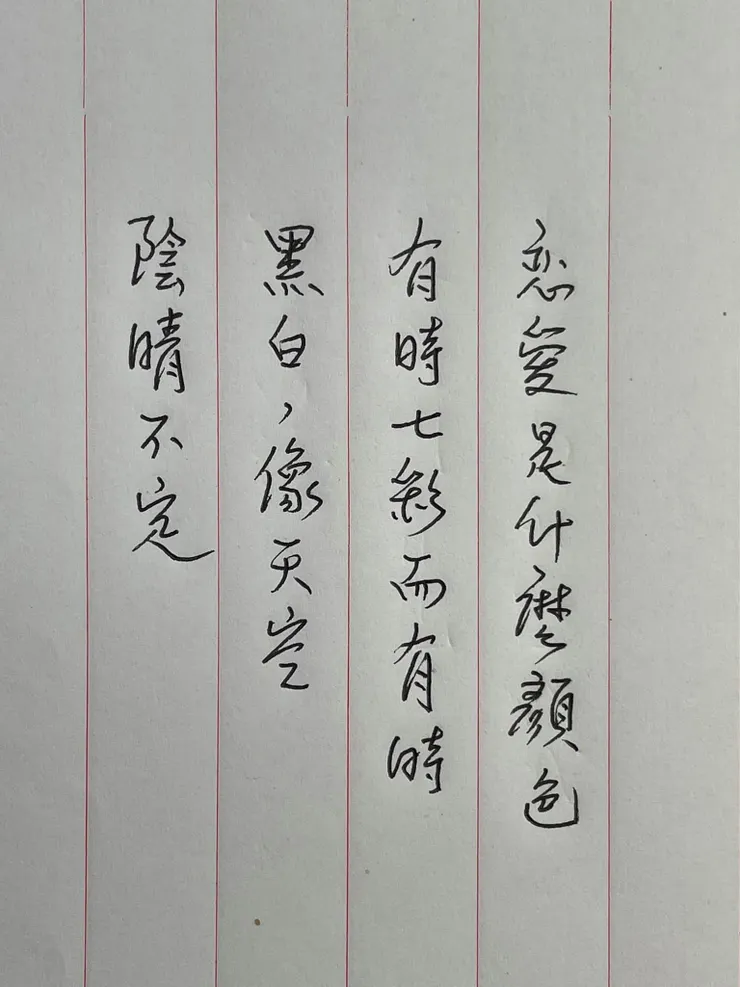 恋愛是什麽顏色
有時七彩而有時
黑白，像天空
陰晴不定